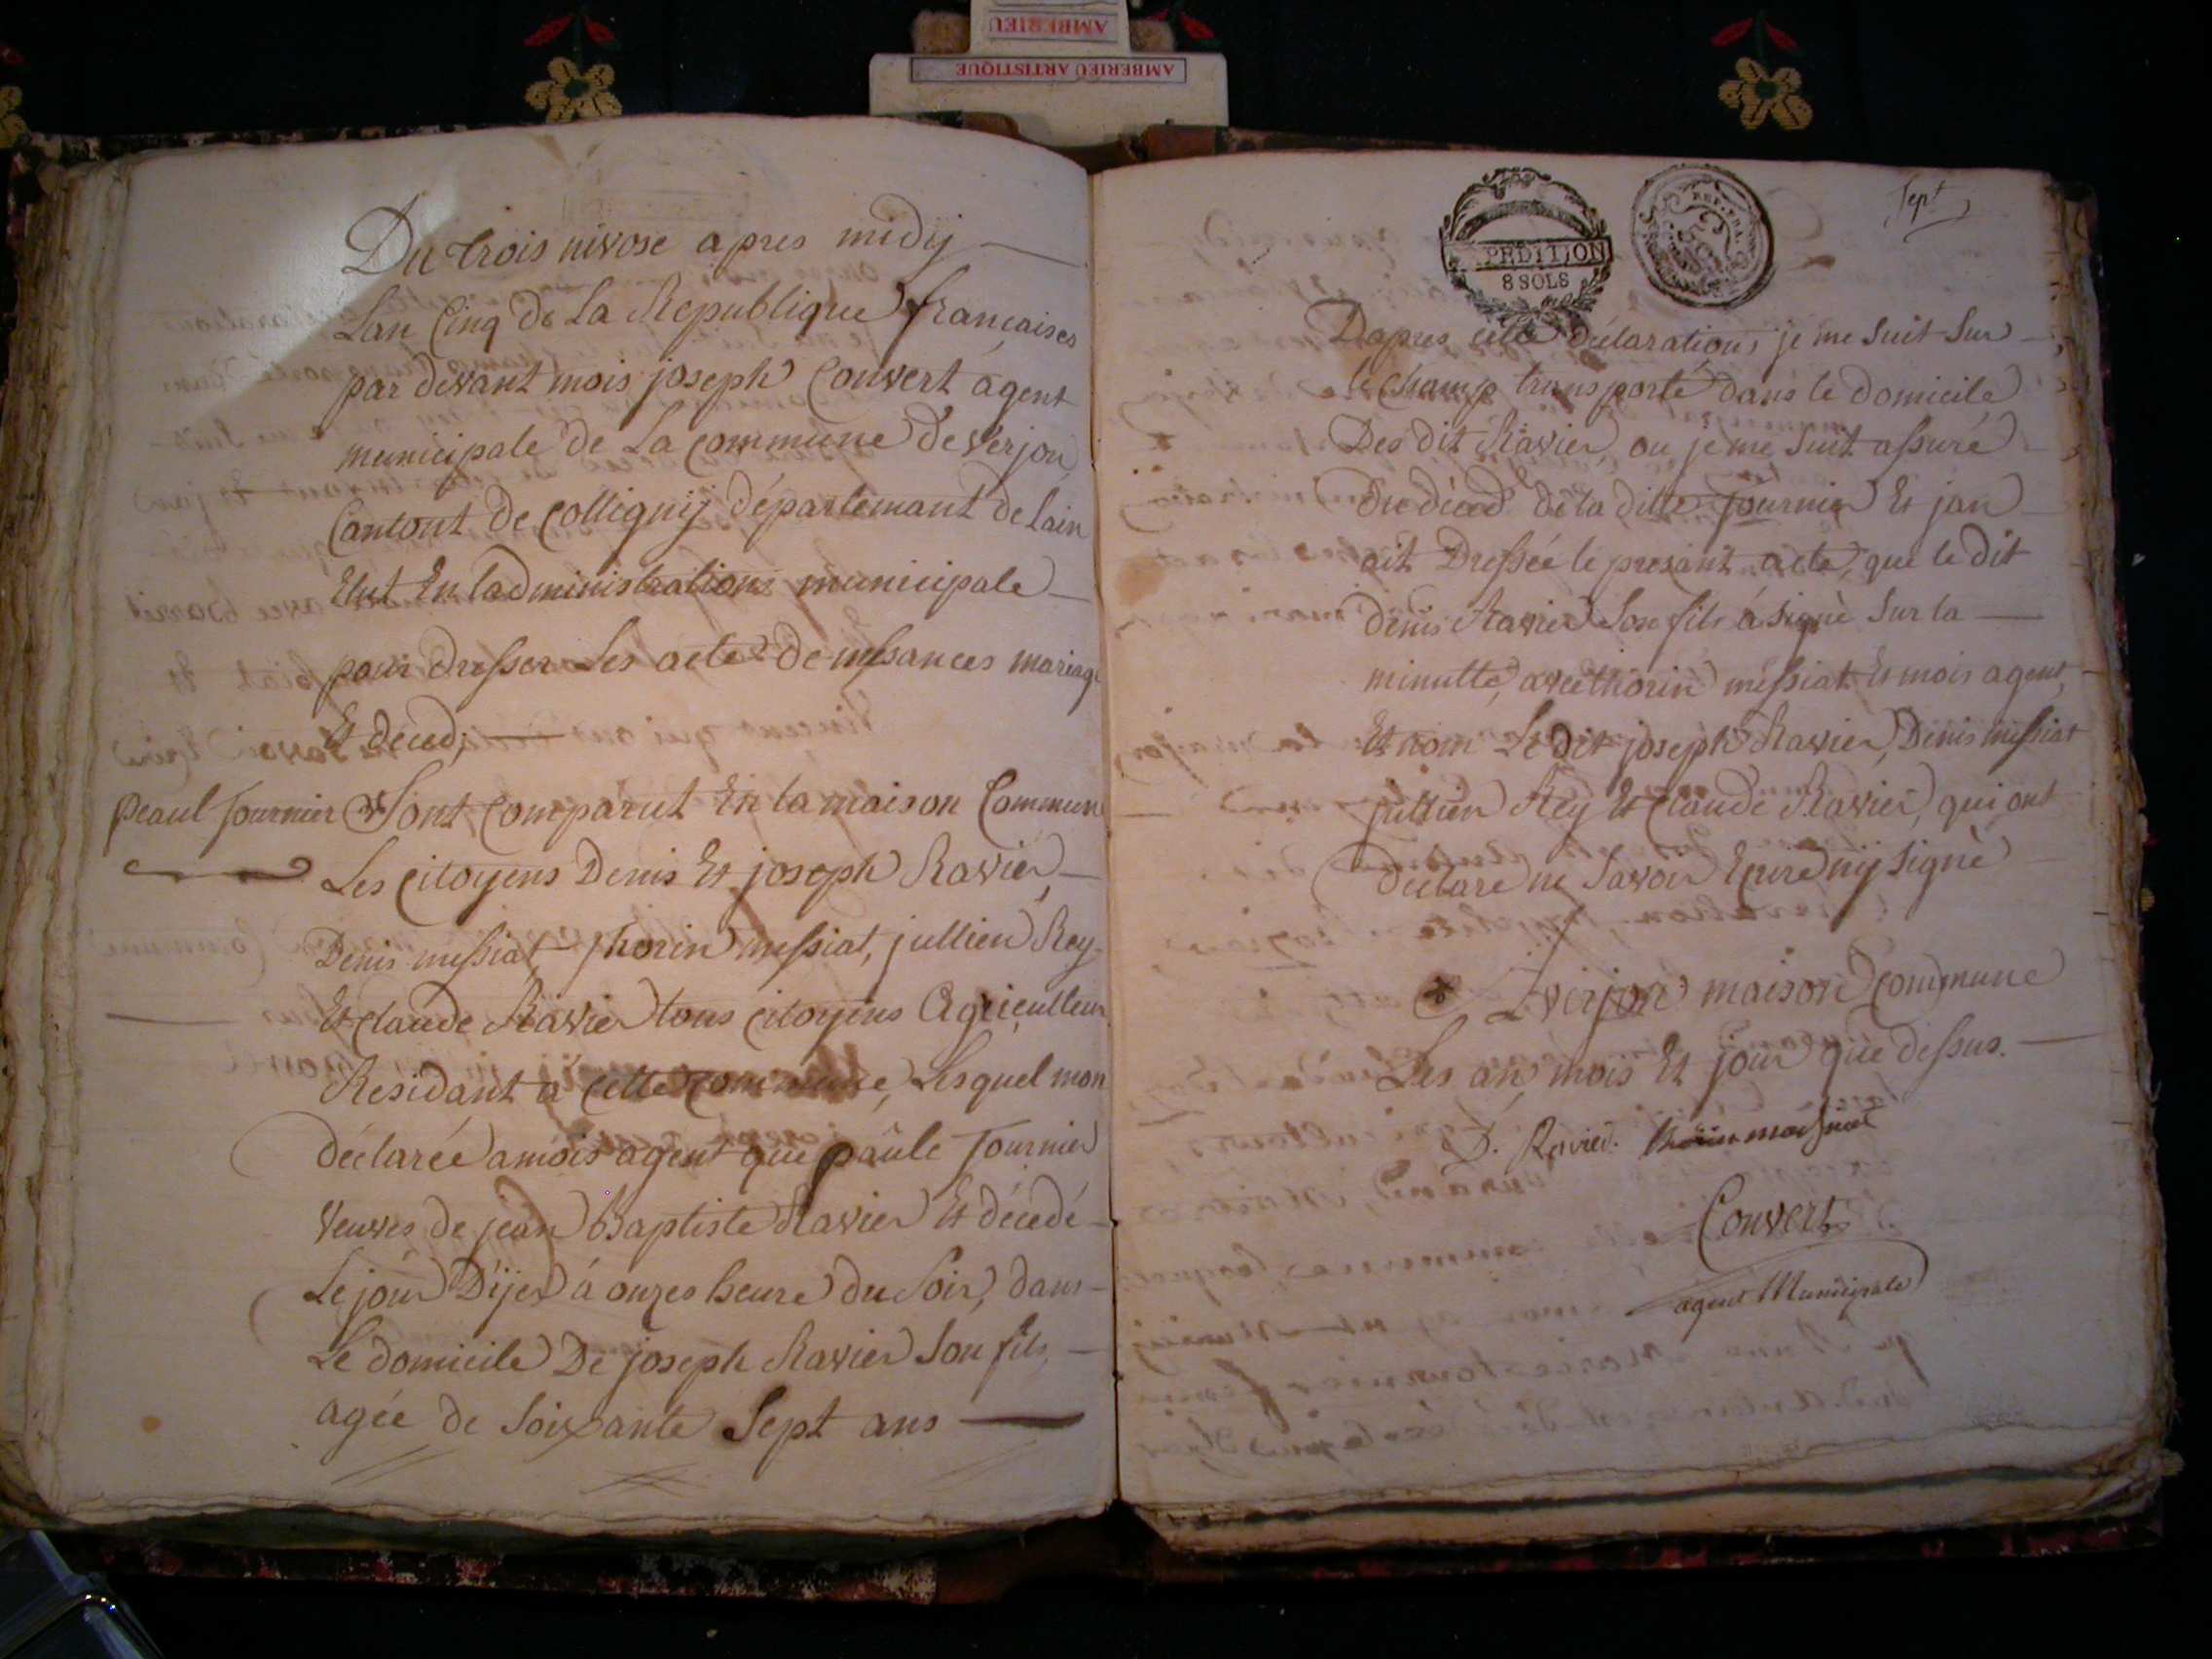 AMBERIEU
AMBERIEU ARTISTIQUE
Du trois nivose apres midij
Lan Cinq de La Republique françaises
par devant mois joseph Convert agent
municipale de La Commune de verjon
Cantont de Collignij départemant de Lain
Elut En ladministrations municipale
pour dresser Les acte de nessances mariage
Et deced;
peaul fournier Sont Comparut En la maison Commune
Les Citoyens Denis Et joseph Ravier
Denis messiat, thorin messiat, jullien Rey
Et Claude Ravier tous Citoyens Agriculteur
Residant a Cette Commune, Lesquel mon
déclarée amois agent que paule fournier
veuves de jean Baptiste Ravier Et décedé
Le jour D'ijer à onzes heure du Soir, dans
Le domicile De joseph Ravier Son fils
agée de Soixante Sept ans
Sept
PEDITION
8 SOLS
REP. FRA.
Dapres cette déclarations je me Suit Sur
le Champ transporté dans le domicile
Des dit Ravier, ou je me Suit assuré
du déced de la ditte fournier Et jan
ait Dressée le presant acte, que le dit
denis Ravier Son fils à signè Sur la
minutte, avec thorin messiat Et mois agent,
Et nom Le dit joseph Ravier, Denis messiat
jullien Rey Et Claude Ravier, qui ont
declare ne Savoir Ecrire nij signè
A verjon maison Commune
Les an, mois Et jour que dessus.
D. Ravier. thorin
Convert
agent Municipale